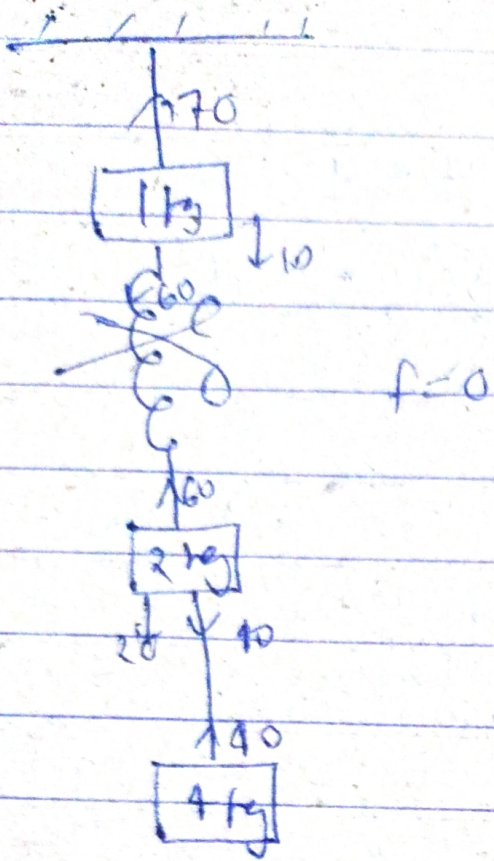 70
1 kg
10
60
f = 0
60
2 kg
20 40
40
4 kg